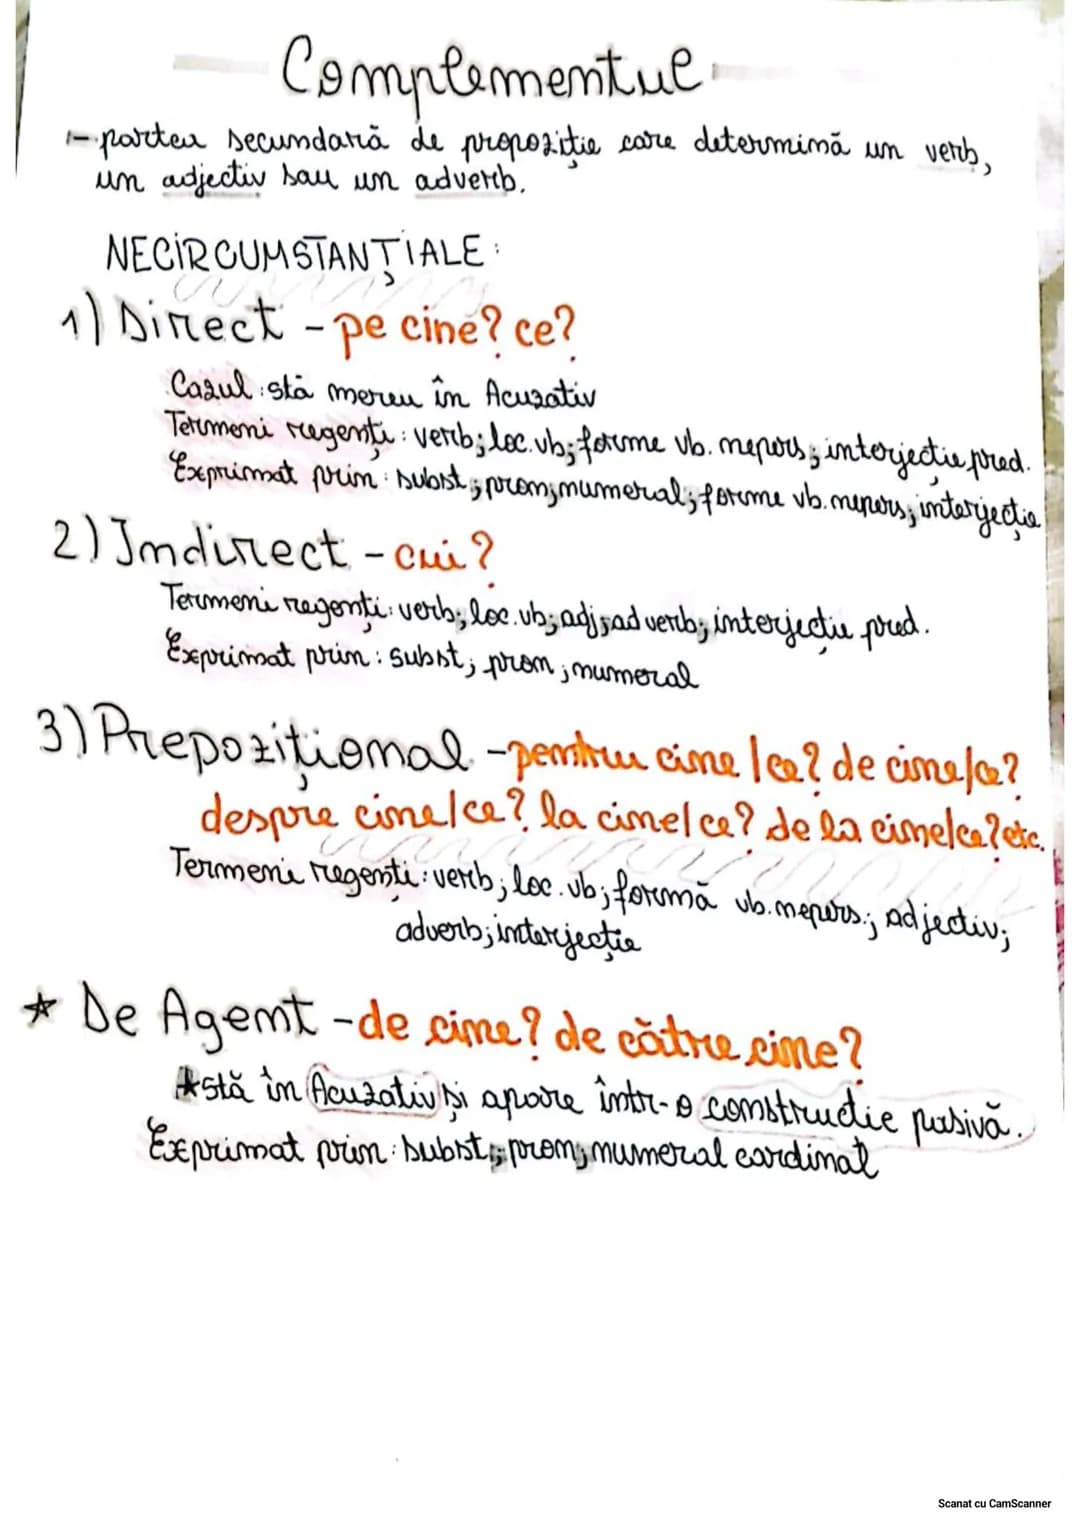 Complementul
- partea secundară de propoziție care determină un verb,
un adjectiv sau un adverb.
NECIRCUMSTANȚIALE:
1) Direct - pe cine? ce?
Cazul: stă mereu în Acuzativ
Termeni regenți: verb; loc.vb; forme vb. nepers; interjecție pred.
Exprimat prin: subst; pron; numeral; forme vb. nepers; interjecție
2) Indirect - cui?
Termeni regenți: verb; loc.vb; adj; adverb; interjecție pred.
Exprimat prin: subst; pron; numeral
3) Prepozițional - pentru cine/ce? de cine/ce?
despre cine/ce? la cine/ce? de la cine/ce? etc.
Termeni regenți: verb; loc.vb; formă vb. nepers.; adjectiv;
adverb; interjecție
★ De Agent - de cine? de către cine?
★ stă în Acuzativ și apare într-o construcție pasivă.
Exprimat prin: subst; pron; numeral cardinal
Scanat cu CamScanner